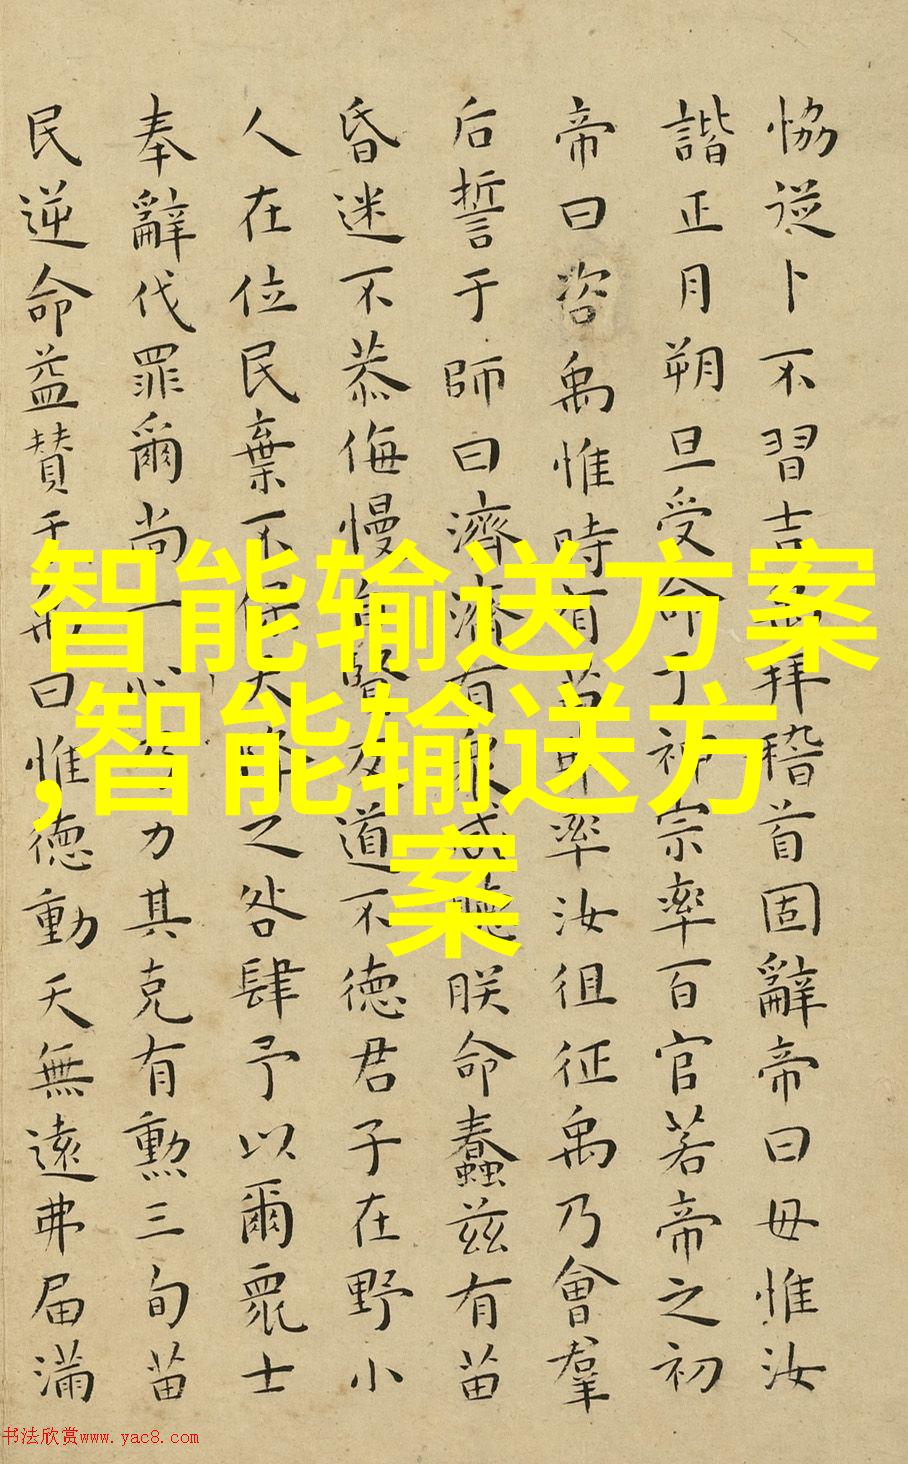 恊從卜不習吉禹拜稽首固辭帝曰毋惟汝
諧正月朔旦受命于神宗率百官若帝之初
帝曰咨禹惟時有苗弗率汝徂征禹乃會羣
后誓于師曰濟濟有衆咸聽朕命蠢茲有苗
昏迷不恭侮慢自賢反道不德君子在野小
人在位民棄不保天降之咎肆予以爾衆士
奉辭伐罪爾尚一心乃力其克有勲三旬苗
民逆命益贊于禹曰惟德動天無遠弗届滿
智能输送方案
,智能输送方
案
书法欣赏www.yac8.com